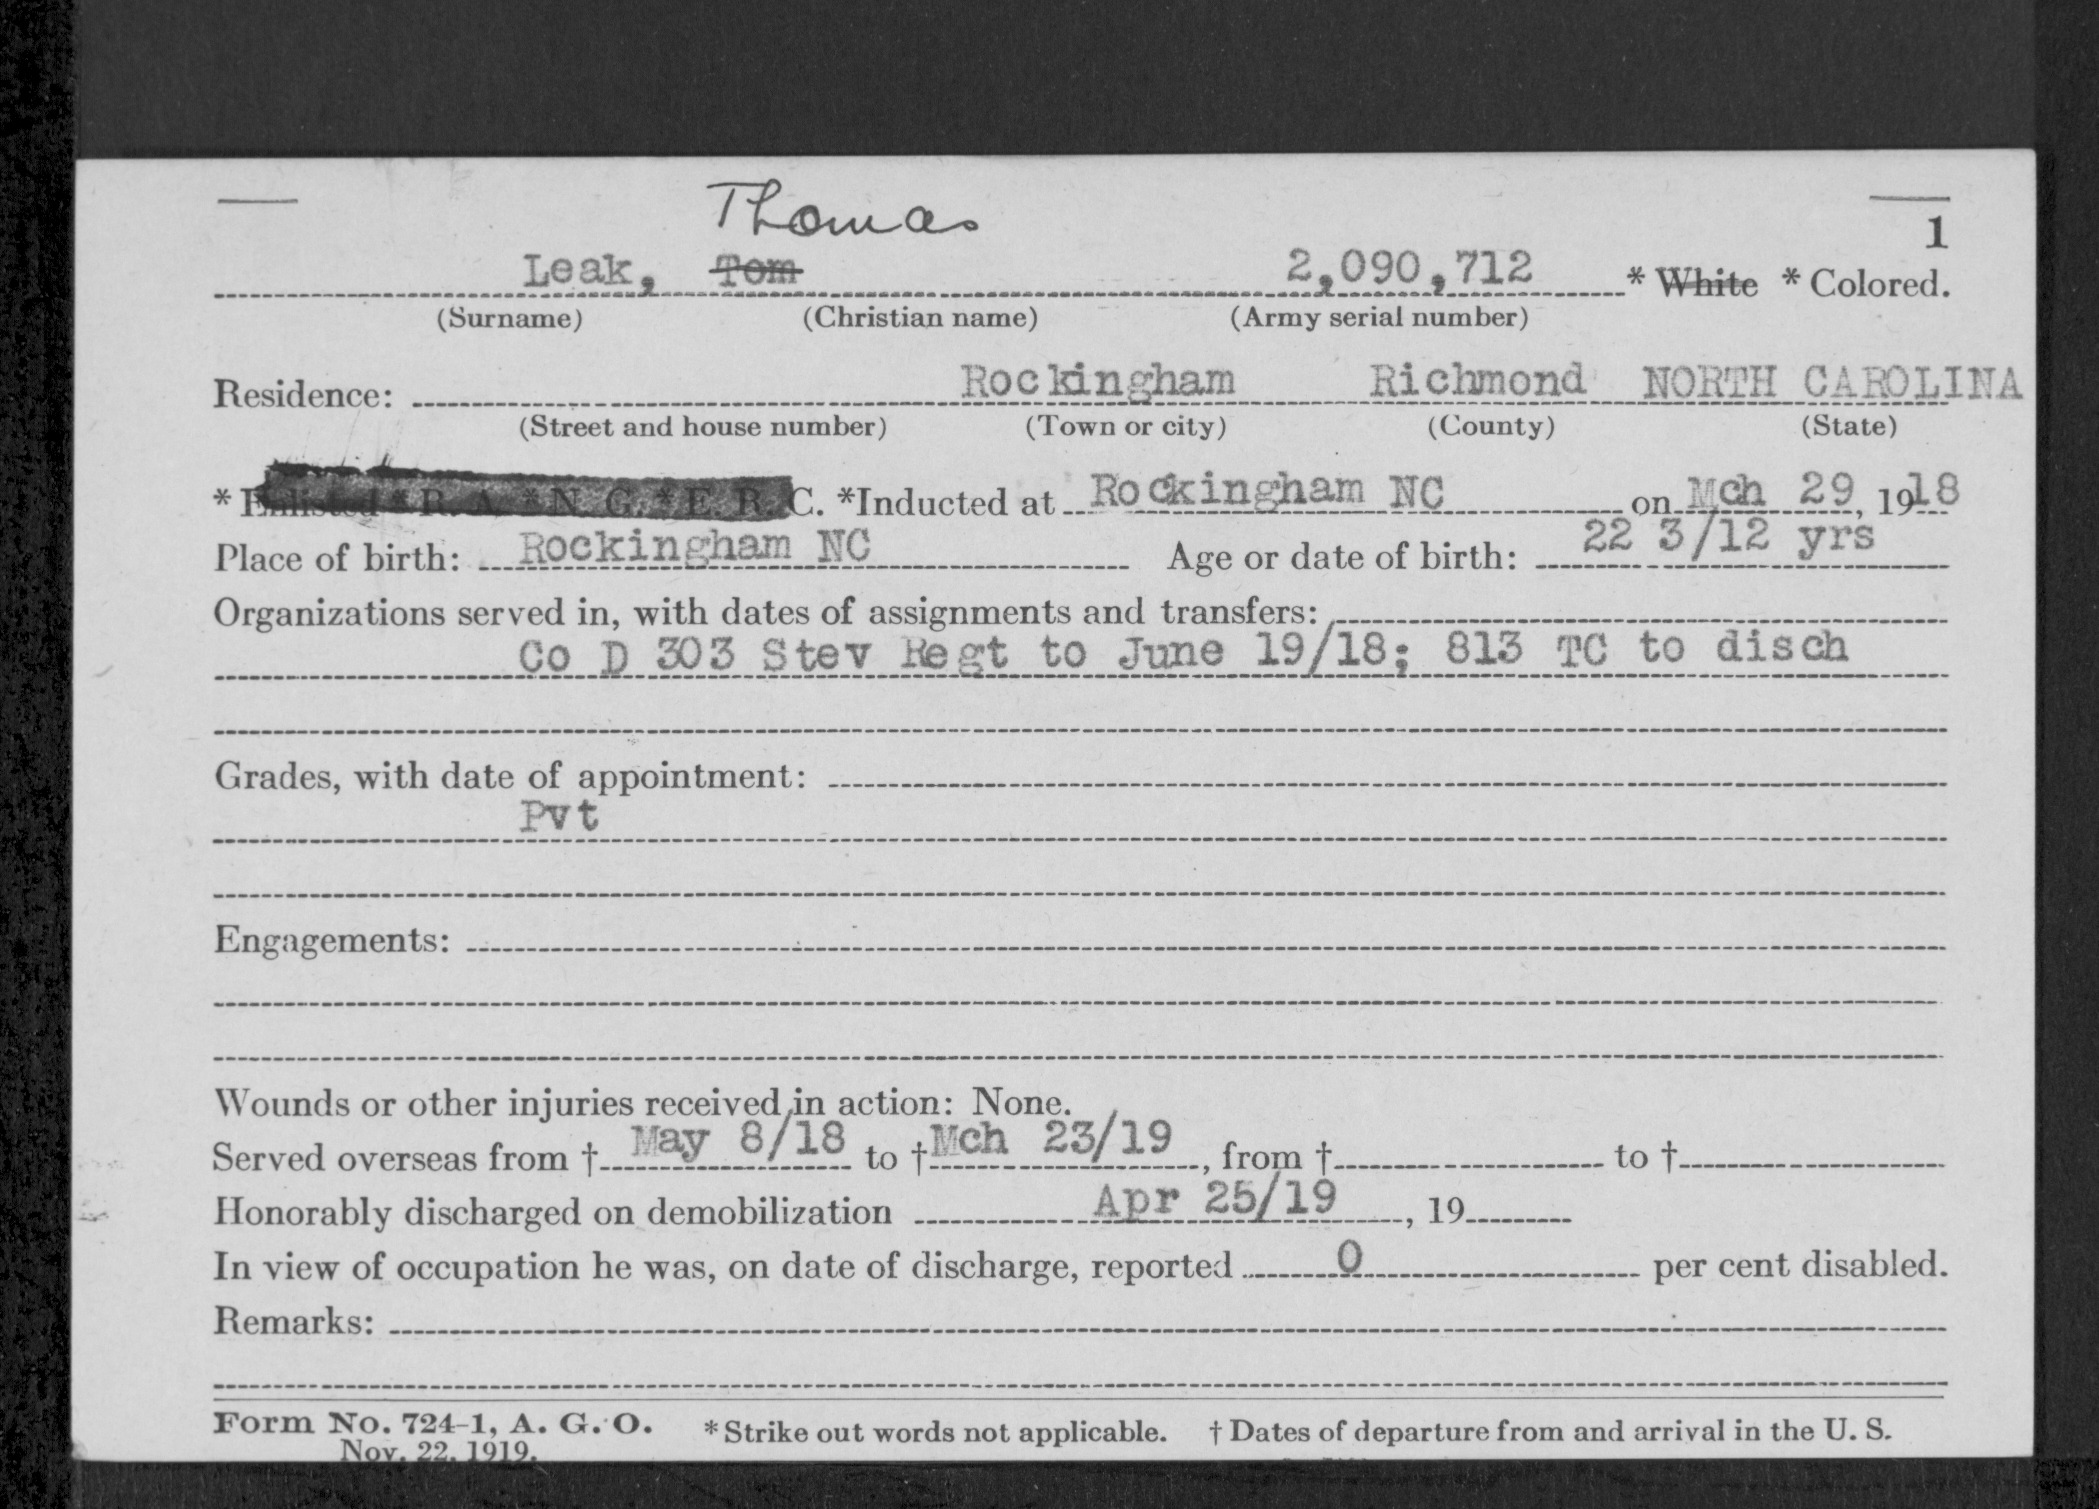 Thomas
1
Leak, Tom 2,090,712 * White * Colored.
(Surname) (Christian name) (Army serial number)
Residence: Rockingham Richmond NORTH CAROLINA
(Street and house number) (Town or city) (County) (State)
* Enlisted * R. A. * N. G. * E. R. C. *Inducted at Rockingham NC on Mch 29, 1918
Place of birth: Rockingham NC Age or date of birth: 22 3/12 yrs
Organizations served in, with dates of assignments and transfers:
Co D 303 Stev Regt to June 19/18; 813 TC to disch
Grades, with date of appointment:
Pvt
Engagements:
Wounds or other injuries received in action: None.
Served overseas from † May 8/18 to † Mch 23/19, from † to †
Honorably discharged on demobilization Apr 25/19, 19
In view of occupation he was, on date of discharge, reported 0 per cent disabled.
Remarks:
Form No. 724-1, A. G. O. * Strike out words not applicable. † Dates of departure from and arrival in the U. S.
Nov. 22, 1919.